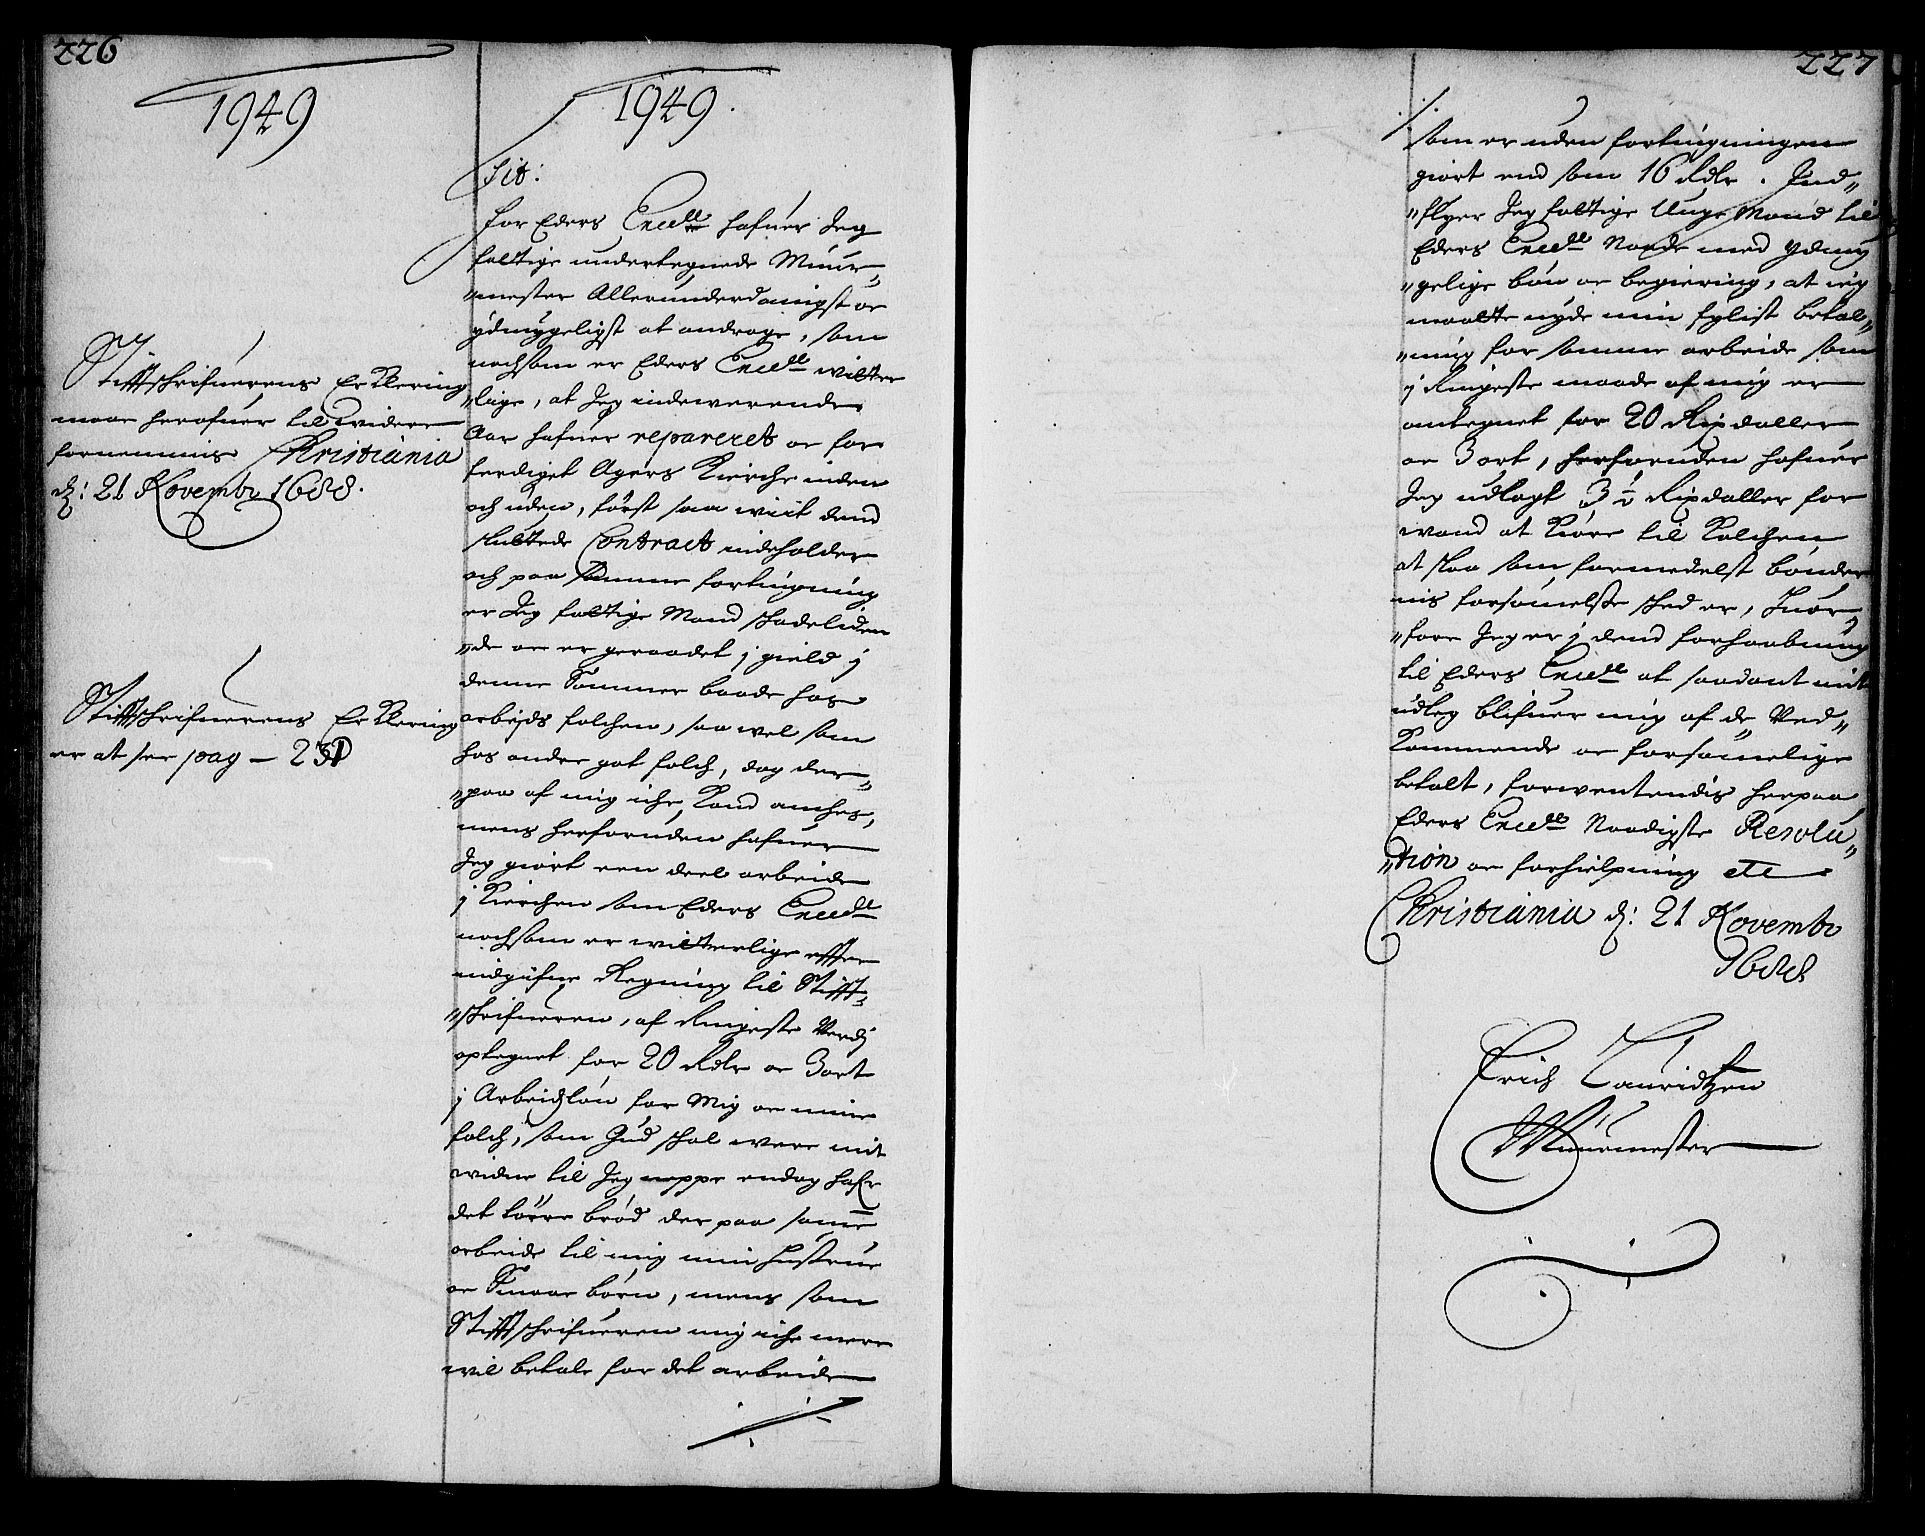 226
1949
Stifftschrifuerens Erklering
maae herofuer til widere
fornemmis Christiania
d: 21 Novembr 1688.
Stifftschrifuerens Erklering
er at see pag – 231
1949.
Tit:
For Eders Excell: hafuer Jeg
fattige undertegnede Muur„
„mester Allerunderdanigst oc
ydmygeligst at andrage, som
nochsom er Eders Excell: witter
„lige, at Jeg indewerende
Aar hafuer repareret oc for
ferdiget Agers Kierche inden
och uden, først saa wiit dend
sluttede Contract indeholder
och paa samme fortingning
er Jeg fattige Mand skadeliden
„de oc er geraadet j gield j
denne Sommer baade hos
arbejds folchen, saa wel som
hos andre got folch, dog der„
„paa af mig iche kand anches,
mens herforuden hafuer
Jeg giort een deel arbeide
j Kierchen som Eders Excell:
nochsom er witterlige effter
indgifne Regning til Stifft„
„schrifueren, af Ringeste Verdj
optegnet for 20 Rdlr oc 3 ort
j Arbeidsløn for Mig oc mine
folch, som Gud skal were mit
widne til Jeg neppe endog hafr
det tørre brød der paa samme
arbeide til mig min hustrue
oc Smaae børn, mens som
Stifftschrifueren mig iche mere
wil betale for det arbeide
./.
227
./.
som er uden fortingningen
giort end som 16 Rdlr. Ind„
„flyer Jeg fattige Unge Mand til
Eders Excell: Naade med ydmy
„gelige bøn oc begiering, at ieg
maatte nyde min billist betal„
„ning for samme arbeide som
j Ringeste maade af mig er
antegnet for 20 Rixdaller
oc 3 ort, herforuden hafuer
Jeg udlagt 3½ Rixdaller for
wand at kiøre til Kalchen
at slaa som formedelst bønder
nis forsømelse skeed er, huor„
„fore Jeg er j dend forhaabning
til Eders Excell: at saadant mit
udleg blifuer mig af de Ved„
kommende oc forsømelige
betalt, forwentendis herpaa
Eders Excell: Naadigste Resolu„
„tion oc forhielpning etc
Christiania d: 21 Novembr
1688
Erich Lauridtzen
Muurmester